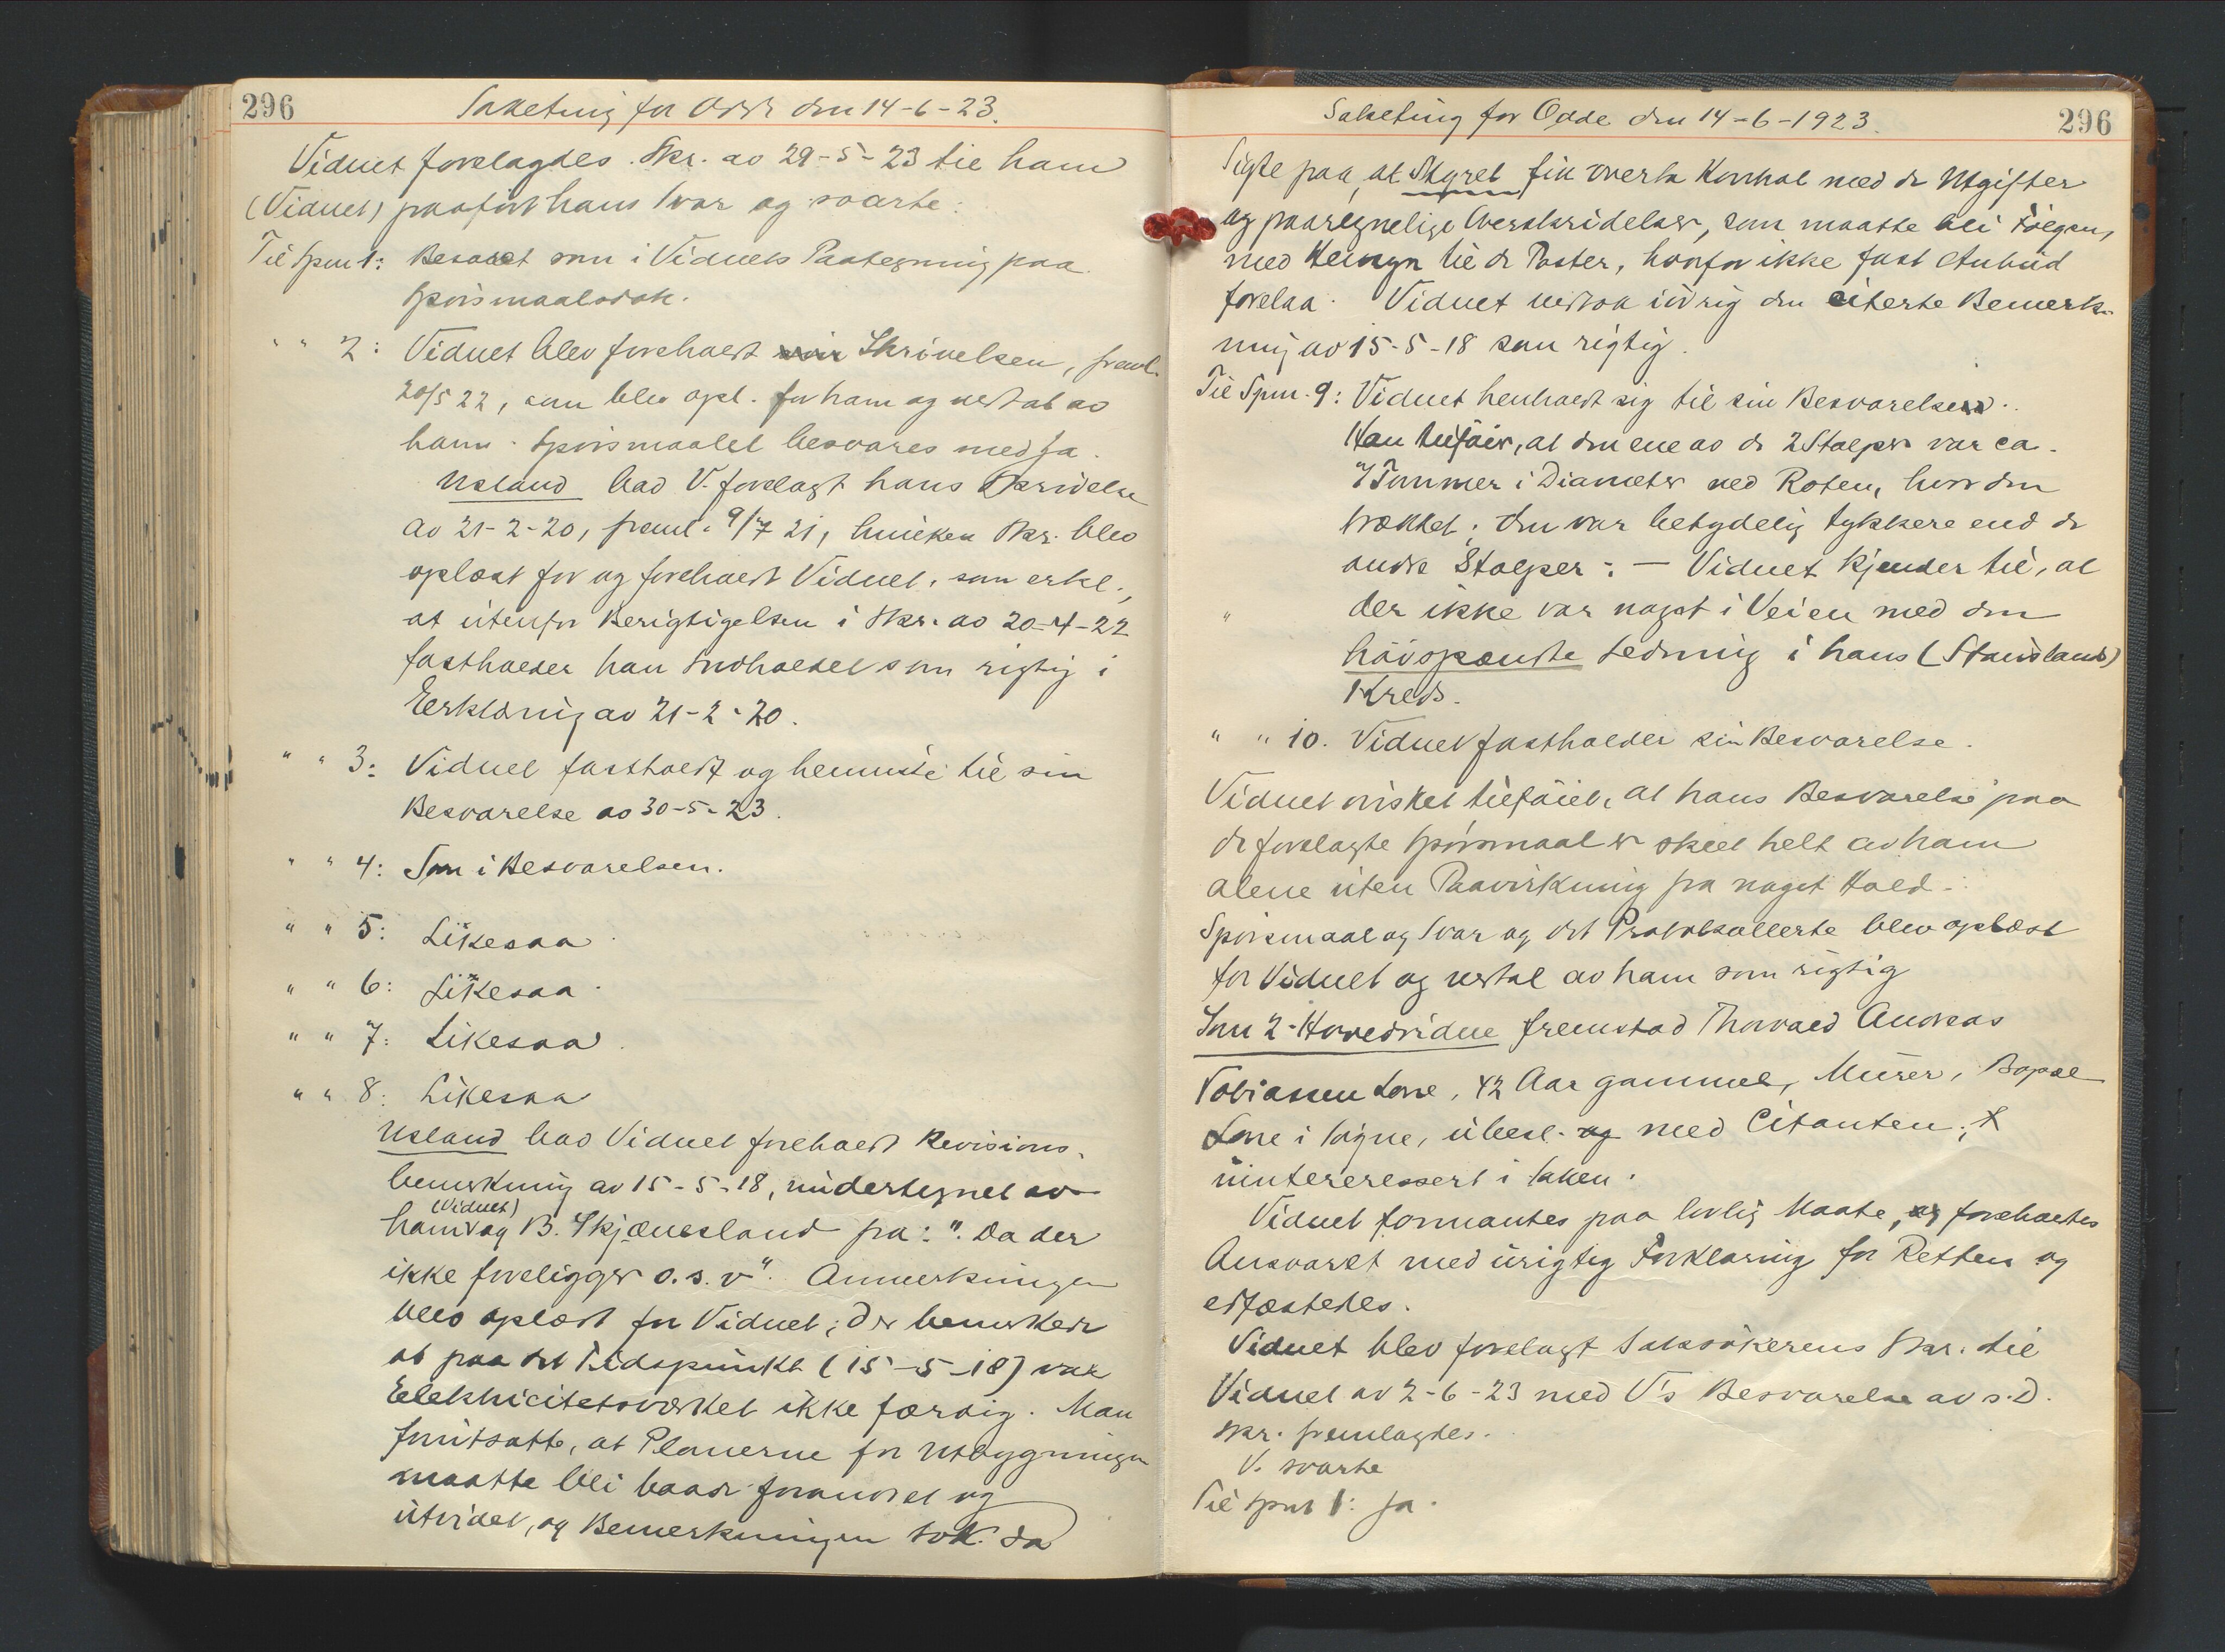 296
Saketing for Odde den 14-6-23.
Vidnet forelagdes Skr. av 29-5-23 til ham
(Vidnet) paaført hans Svar og svarte:
Til Spm 1: Besvaret som i Vidnets Paategning paa
Spørsmaalsdok.
" " 2: Vidnet blev foreholdt Skrivelsen, freml.
20/5 22, som blev opl. for ham og vedtat av
ham. Spørsmaalet besvares med Ja.
Usland bad V. forelagt hans Skrivelse
av 21-2-20, freml. 9/7 21, hvilken Skr. blev
oplæst for og foreholdt Vidnet, som erkl.,
at utenfor Berigtigelsen i Skr. av 20-4-22
fastholder han Indholdet som rigtig i
Erklæring av 21-2-20.
" " 3: Vidnet fastholdt og henviste til sin
Besvarelse av 30-5-23.
" " 4: Som i Besvarelsen.
" " 5: Likesaa
" " 6: Likesaa
" " 7: Likesaa
" " 8: Likesaa
Usland bad Vidnet foreholdt Revisions-
bemerkning av 15-5-18, undertegnet av
(Vidnet)
ham og B. Skjænesland paa: ". Da der
ikke foreligger o.s.v". Anmerkningen
blev oplæst for Vidnet; der bemerket
at paa det Tidspunkt (15-5-18) var
Elektricitetsverket ikke færdig. Man
forutsatte, at Planerne for Utbygningen
maatte bli baade forandret og
utvidet, og Bemerkningen tok da
Saketing for Odde den 14-6-1923.
296
Sigte paa, at Styret fik overta Kontrol med de Utgifter
og paaregnelige Overskridelser, som maatte bli Følgen,
med Hensyn til de Poster, hvorfor ikke fast Anbud
forelaa. Vidnet vedtok iøvrig den citerte Bemerk-
ning av 15-5-18 som rigtig.
Til Spm. 9: Vidnet henholdt sig til sin Besvarelse.
Han tilføier, at den ene av de 2 Stolper var ca.
7 Tommer i Diameter ned Roten, hvor den
brækket; den var betydelig tykkere end de
andre Stolper. — Vidnet kjender til, at
" der ikke var noget i Veien med den
høispændte Ledning i hans (Stauslands)
Kreds.
" " 10. Vidnet fastholder sin Besvarelse.
Vidnet ønsket tilføiet, at hans Besvarelse paa
de forelagte Spørsmaal er skeet helt av ham
alene uten Paavirkning fra noget Hold.
Spørsmaal og Svar og det Protokollerte blev oplæst
for Vidnet og vedtat av ham som rigtig
Som 2. Hovedvidne fremstod Thorvald Andreas
Tobiassen Lone, 42 Aar gammel, Murer, Bopæl
Lone i Søgne, ubesl. og med Citanten, &
uintereressert i Saken.
Vidnet formantes paa lovlig Maate, og foreholdtes
Ansvaret med urigtig Forklaring for Retten og
edfæstedes.
Vidnet blev forelagt Saksøkerens Skr. til
Vidnet av 2-6-23 med V's Besvarelse av s.D.
Skr. fremlagdes.
V. svarte
Til Spm 1: Ja.